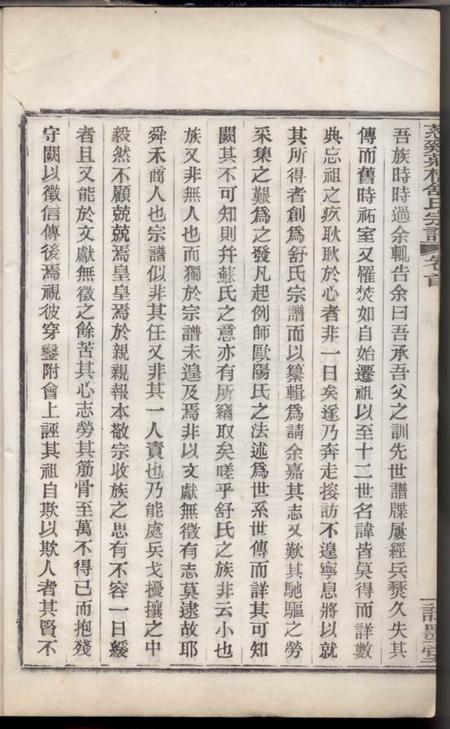 吾族時時過余輒告余曰吾承吾父之訓先世譜牒屢經兵燹久失其
傳而舊時祏室又罹焚如自始遷祖以至十二世名諱皆莫得而詳數
典忘祖之疚耿耿於心者非一日矣遂乃奔走採訪不遑寧息將以就
其所得者創為舒氏宗譜而以纂輯為請余嘉其志又歎其馳驅之勞
采集之艱為之發凡起例師歐陽氏之法述為世系世傳而詳其可知
闕其不可知則幷蘇氏之意亦有所竊取矣嗟乎舒氏之族非云小也
族又非無人也而獨於宗譜未遑及焉非以文獻無徵有志莫逮故耶
舜禾商人也宗譜似非其任又非其一人責也乃能處兵戈擾攘之中
毅然不顧兢兢焉皇皇焉於親親報本敬宗收族之思有不容一日緩
者且又能於文獻無徵之餘苦其心志勞其筋骨至萬不得已而抱殘
守闕以徵信傳後焉視彼穿鑿附會上誣其祖自欺以欺人者其賢不